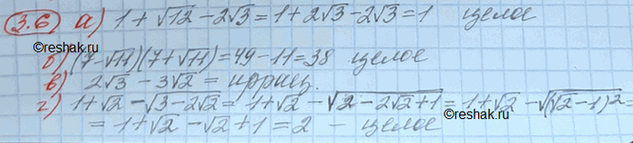 3.6 а) 1+√12-2√3=1+2√3-2√3=1 целое
б) (7-√11)(7+√11)=49-11=38 целое
в) 2√3-3√2= иррац.
г) 1+√2-√3-2√2=1+√2-√2-2√2+1=1+√2-√(√2-1)²=
=1+√2-√2+1=2 - целое